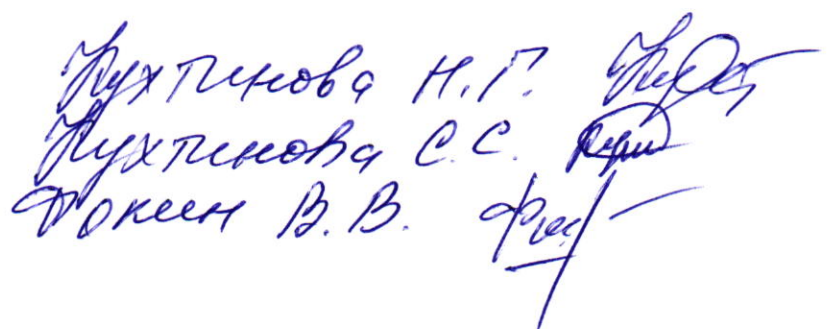 Кухтинова Н.Г.
Кухтинова С.С.
Фокин В.В.